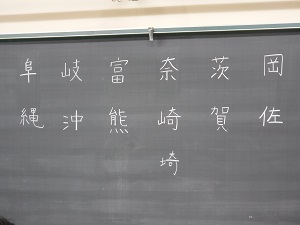 岡 茨 奈 富 岐 阜
佐 賀 崎 熊 沖 縄
埼